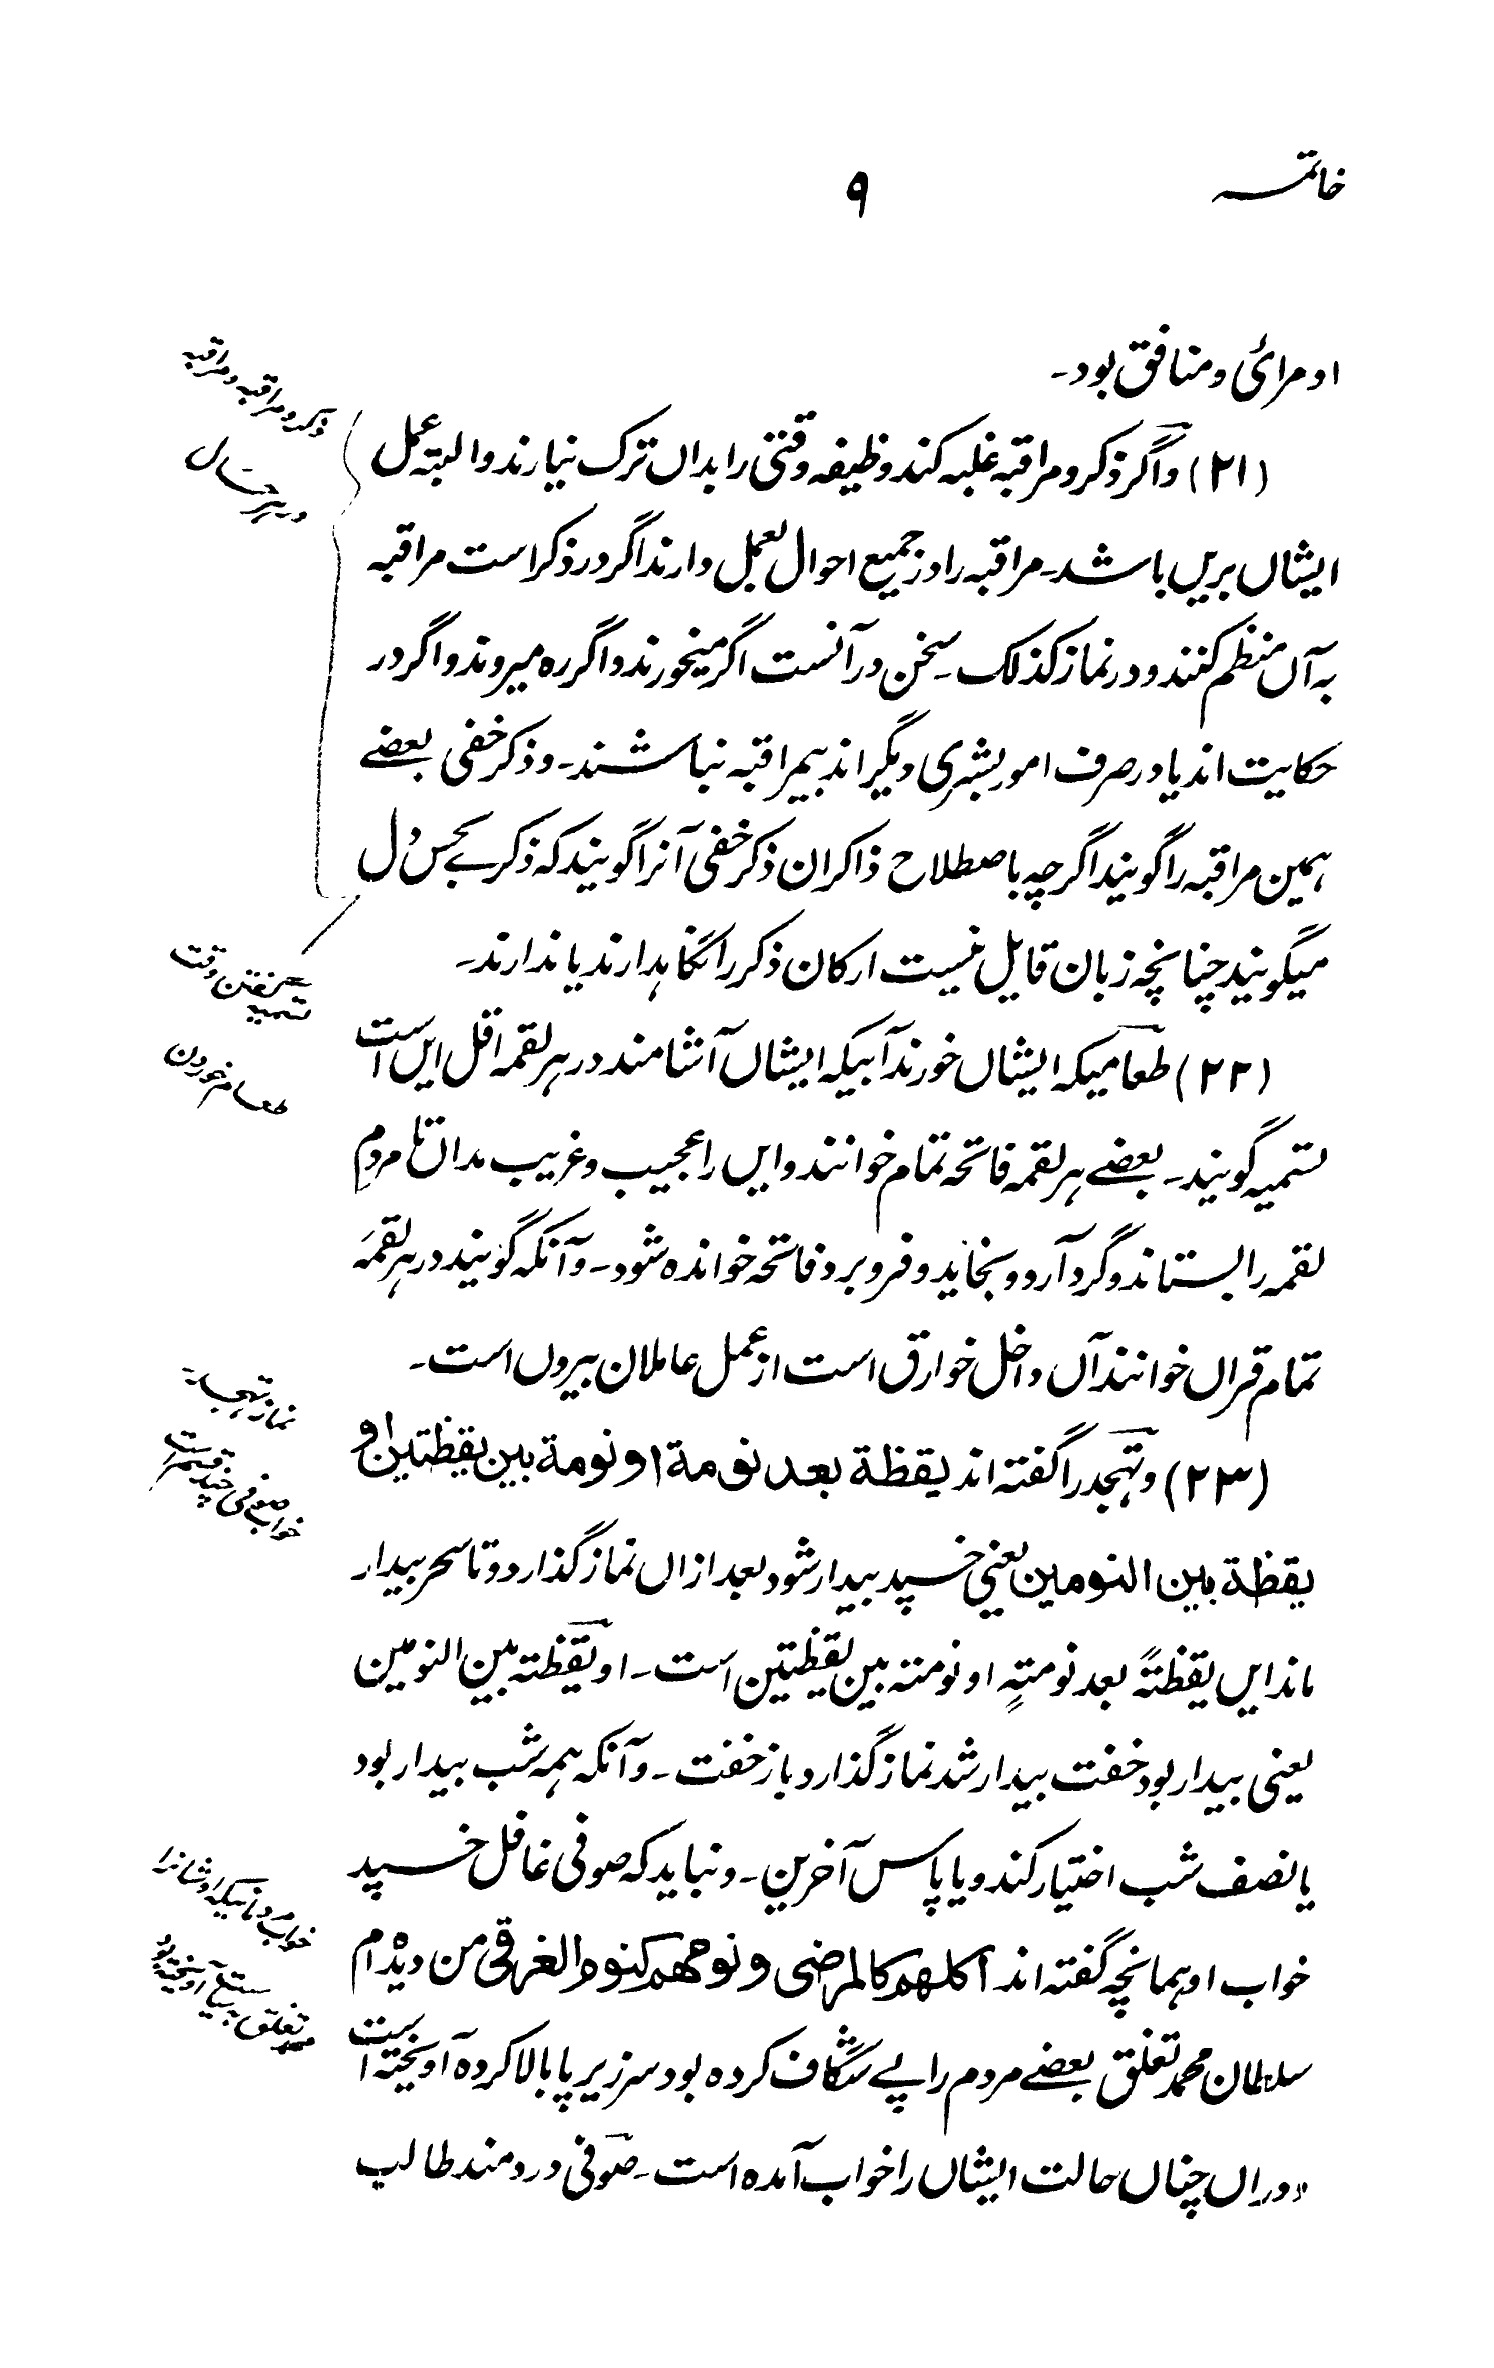 خاتمہ
۹
او مرائی و منافق بود۔
(۲۱) و اگر ذکر و مراقبہ غلبہ کند وظیفہ وقتی را بداں ترک نیارند و البتہ عمل
ایشاں بریں باشد۔ مراقبہ را در جمیع احوال بعمل دارند اگر در ذکر است مراقبہ
بہ آں منظم کنند و در نماز کذلک۔ سخن در آنست اگر میخورند و اگر رہ میروند و اگر در
حکایت اند یا در صرف امور بشری دیگر اند بیمراقبہ نباشند۔ و ذکر خفی بعضے
ہمین مراقبہ را گویند اگرچہ باصطلاح ذاکران ذکر خفی آنرا گویند کہ ذکر بے حس دل
میگویند چنانچہ زبان قایل نیست ارکان ذکر را نگاہدارند یا ندارند۔
(۲۲) طعامیکہ ایشاں خورند آبیکہ ایشاں آشامند در ہر لقمہ اقل ایں است
تسمیہ گویند۔ بعضے ہر لقمہ فاتحہ تمام خوانند و ایں را عجیب و غریب مداں تا مردم
لقمہ را بستاند و گرد آرد و بخاید و فرو برد فاتحہ خواندہ شود۔ و آنکہ گویند در ہر لقمہ
تمام قراں خوانند آں داخل خوارق است از عمل عاملان بیروں است۔
(۲۳) و تہجد را گفتہ اند يقظة بعد نومة او نومة بين يقظتين او
يقظة بين النومين یعنی خسپد بیدار شود بعد ازاں نماز گذارد و تا سحر بیدار
ماند ایں یقظتہً بعد نومتہٍ او نومتہ بین یقظتین است۔ او یقظتہ بین النومین
یعنی بیدار بود خفت بیدار شد نماز گذارد باز خفت۔ و آنکہ ہمہ شب بیدار بود
یا نصف شب اختیار کند و یا پاس آخرین۔ و نباید کہ صوفی غافل خسپد
خواب او ہمانچہ گفتہ اند اكلهم كالمرضى و نومهم كنوم الغرقى من دیدہ ام
سلطان محمد تغلق بعضے مردم را پے شگاف کردہ بود سر زیر پا بالا کردہ آویختہ است
دراں چناں حالت ایشاں را خواب آمدہ است۔ صوفی دردمند طالب
ذکر و مراقبہ و مراقبہ
در ہر حال
تسمیہ گفتن وقت
طعام خوردن
نماز تہجد
خواب صوفی چند قسم است
خواب مردمانیکہ اوشانرا
محمد تغلق